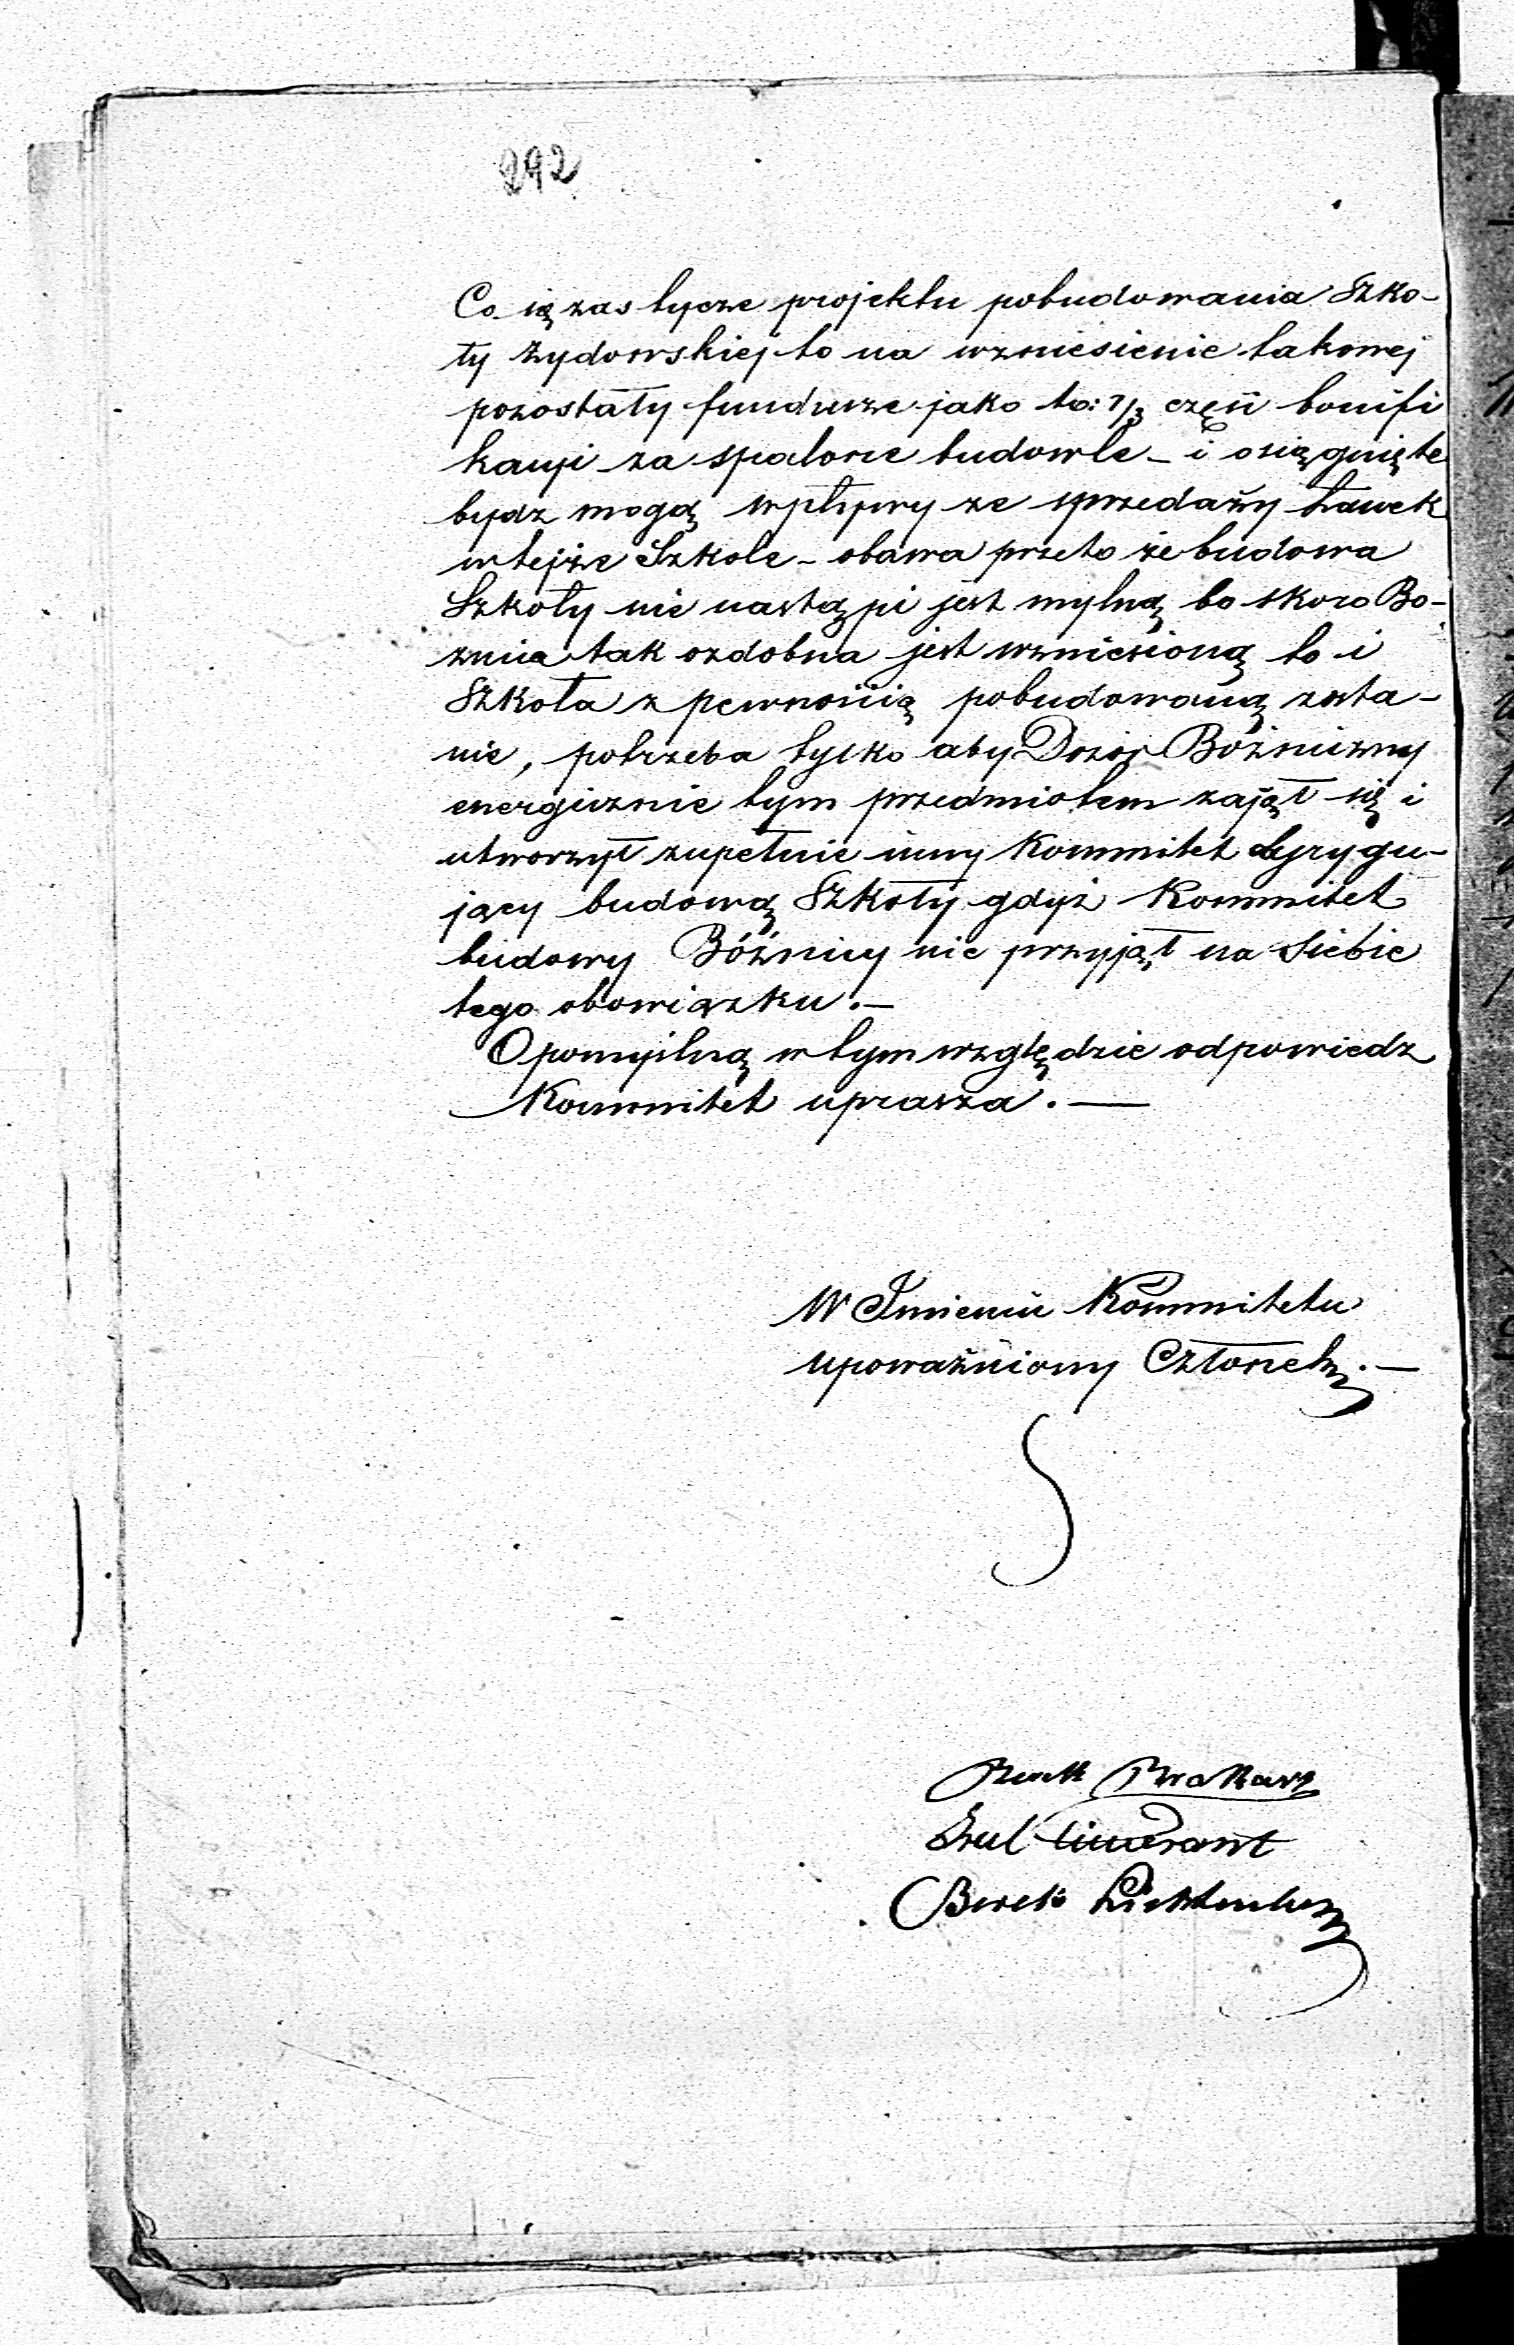 292
Co się zas tycze projektu pobudowania Szko-
ły żydowskiej to na wzniesienie takowej
pozostały fundusze jako to: 1/3 części bonifi
kacyi za spalone budowle – i osiągnięte
bydz mogą wpływy ze sprzedaży Ławek
w tejże Szkole – obawa przeto że budowa
Szkoły nie nastąpi jest mylną bo skoro Bo-
znica tak ozdobna jest wzniesioną to i
Szkoła z pewnością pobudowaną zosta-
nie, potrzeba tylko aby Dozór Bóżniczny
energicznie tym przedmiotem zajął się i
utworzył zupełnie inny Kommitet dyrygu-
jący budową Szkoły gdyż Kommitet
budowy Bóżnicy nie przyjął na siebie
tego obowiązku. –
O pomyślną w tym względzie odpowiedz
Kommitet uprasza. —
W Imieniu Kommitetu
upoważniony Członek. –
Berek